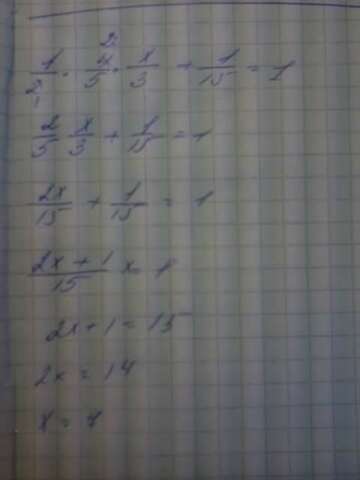 1/2 · 4/5 · x/3 + 1/15 = 1
2/5 x/3 + 1/15 = 1
2x/15 + 1/15 = 1
(2x + 1)/15 = 1
2x + 1 = 15
2x = 14
x = 7